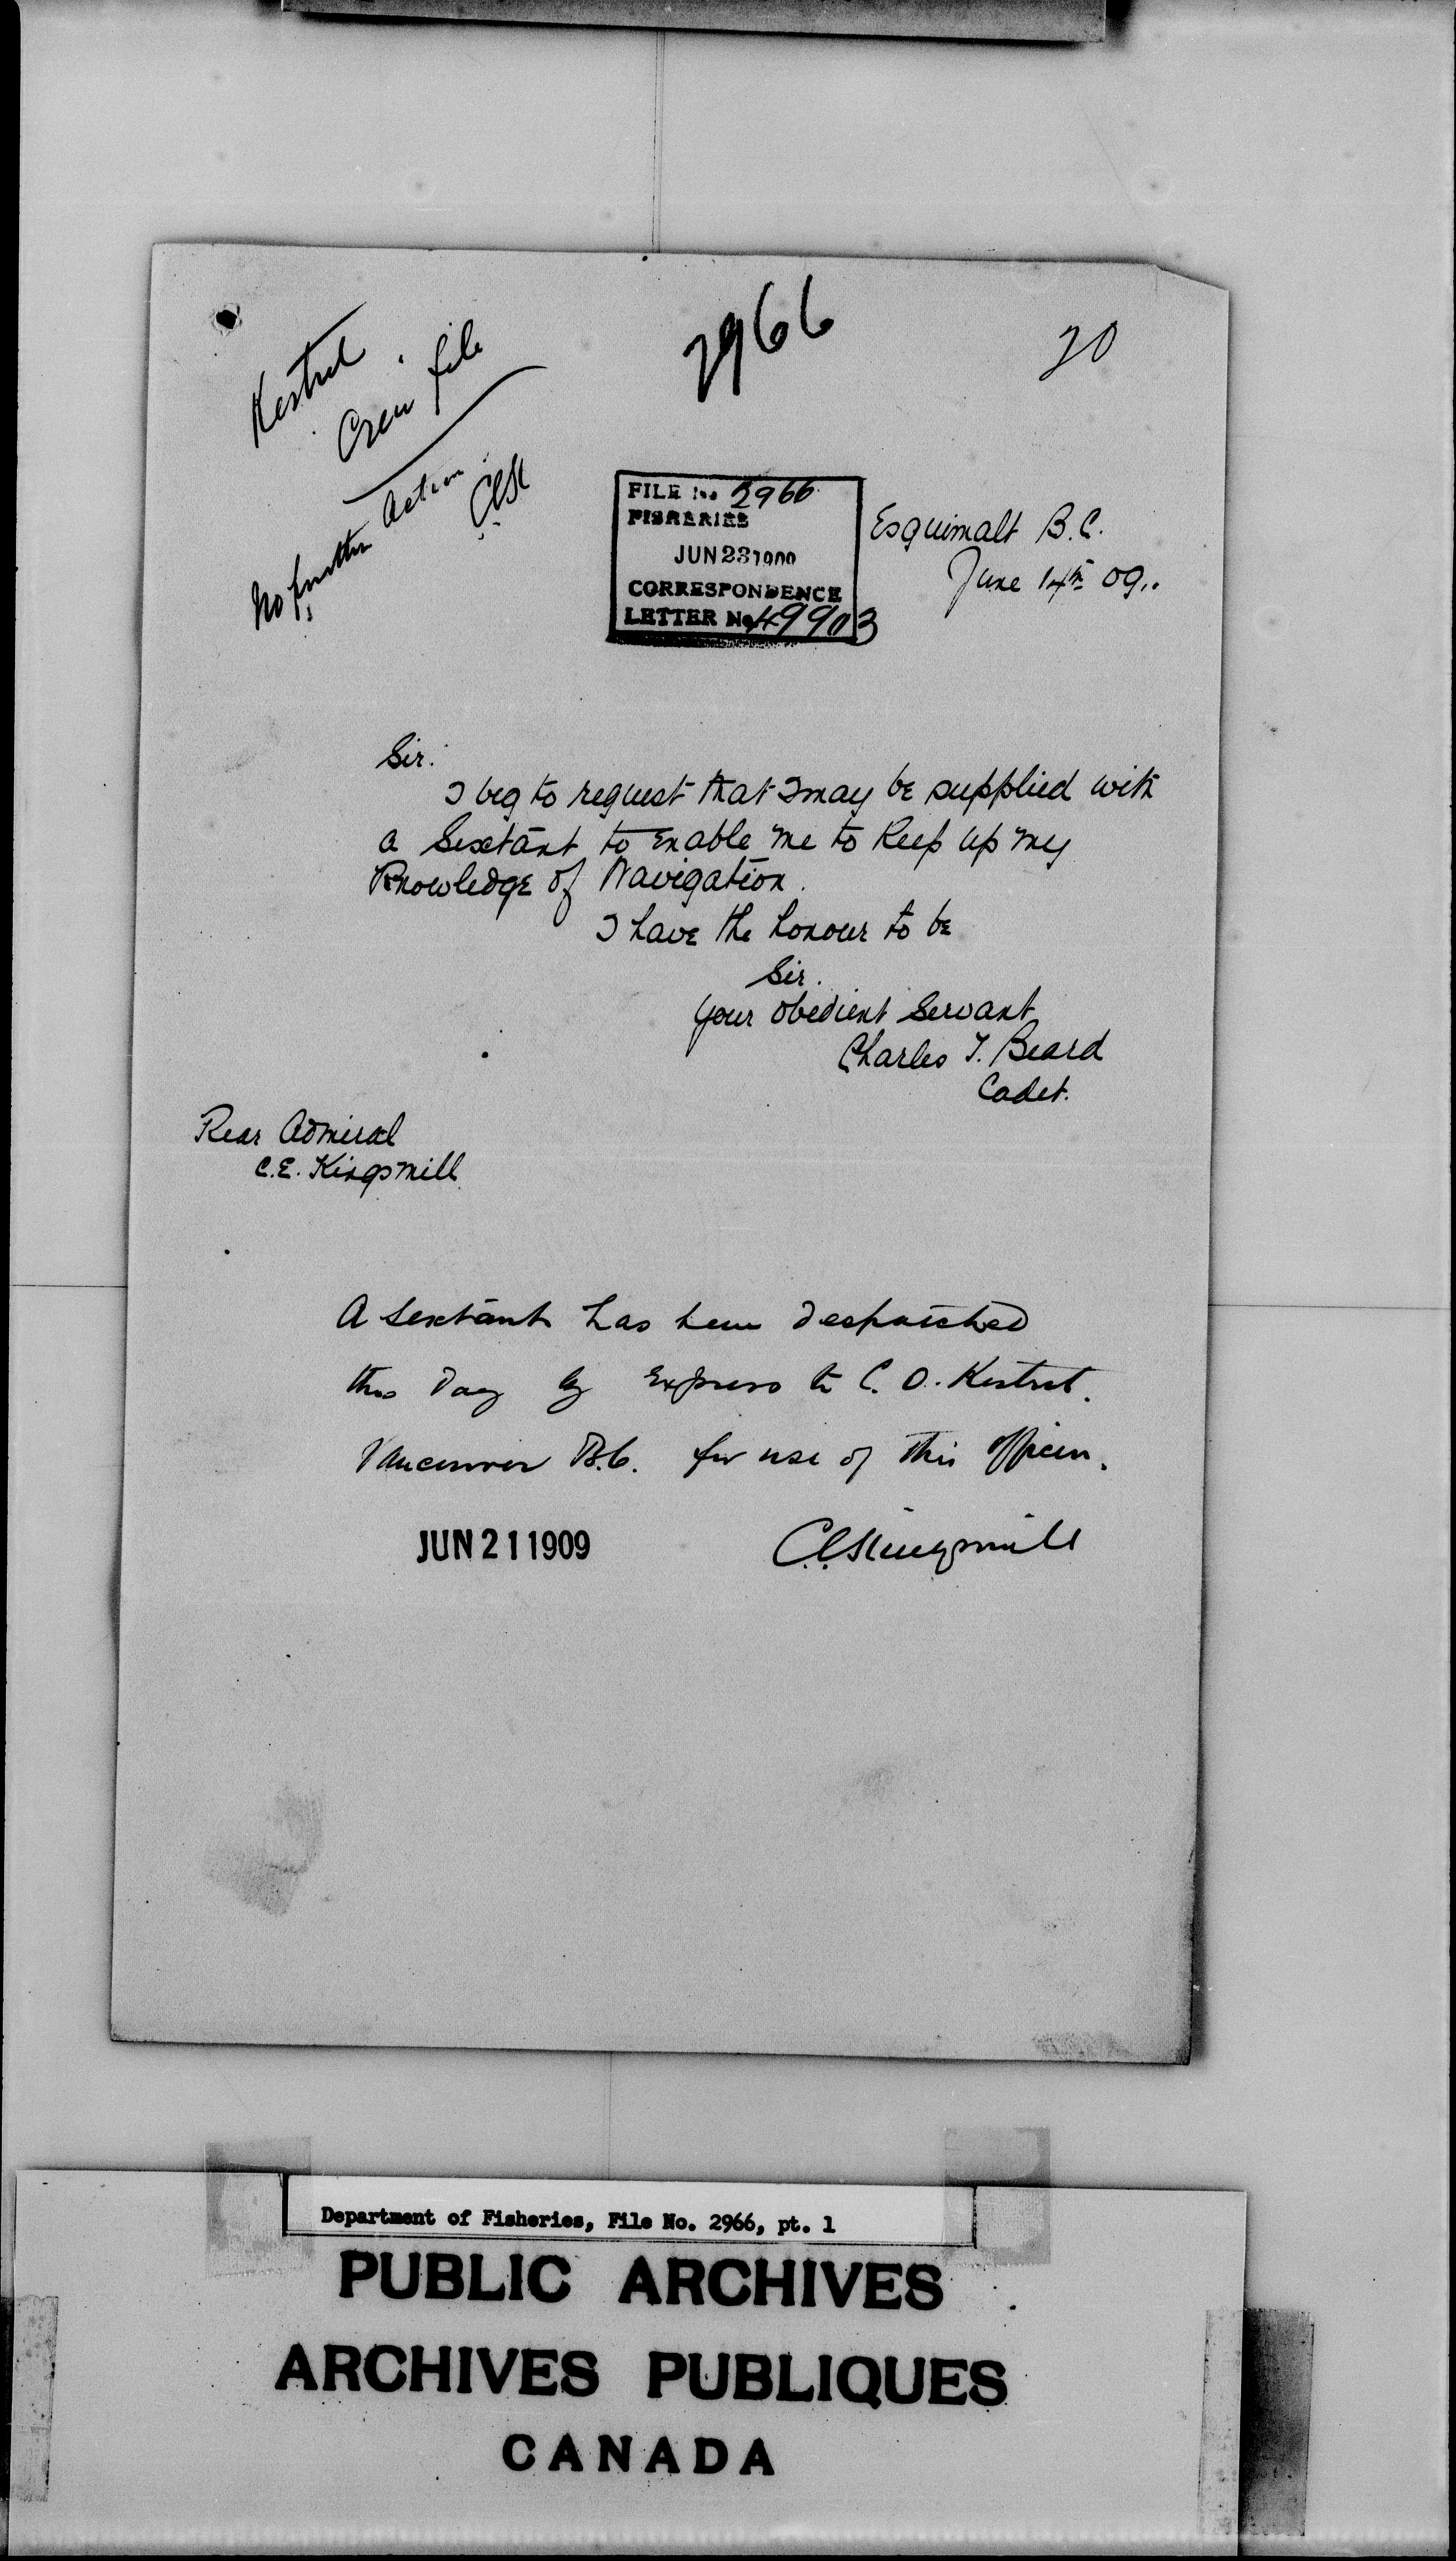 2966
20
Kestrel
Crew file
No further action
CEK
FILE No 2966
FISHERIES
JUN 23 1909
CORRESPONDENCE
LETTER No 49903
Esquimalt B.C.
June 14th 09..
Sir.
I beg to request that I may be supplied with
a Sextant to enable me to keep up my
Knowledge of Navigation.
I have the honour to be
Sir.
Your obedient Servant
Charles T. Beard
Cadet.
Rear Admiral
C.E. Kingsmill
A sextant has been despatched
this day by Express to C. O. Kestrel.
Vancouver B.C. for use of this officer.
JUN 21 1909
CEKingsmill
Department of Fisheries, File No. 2966, pt. 1
PUBLIC ARCHIVES
ARCHIVES PUBLIQUES
CANADA